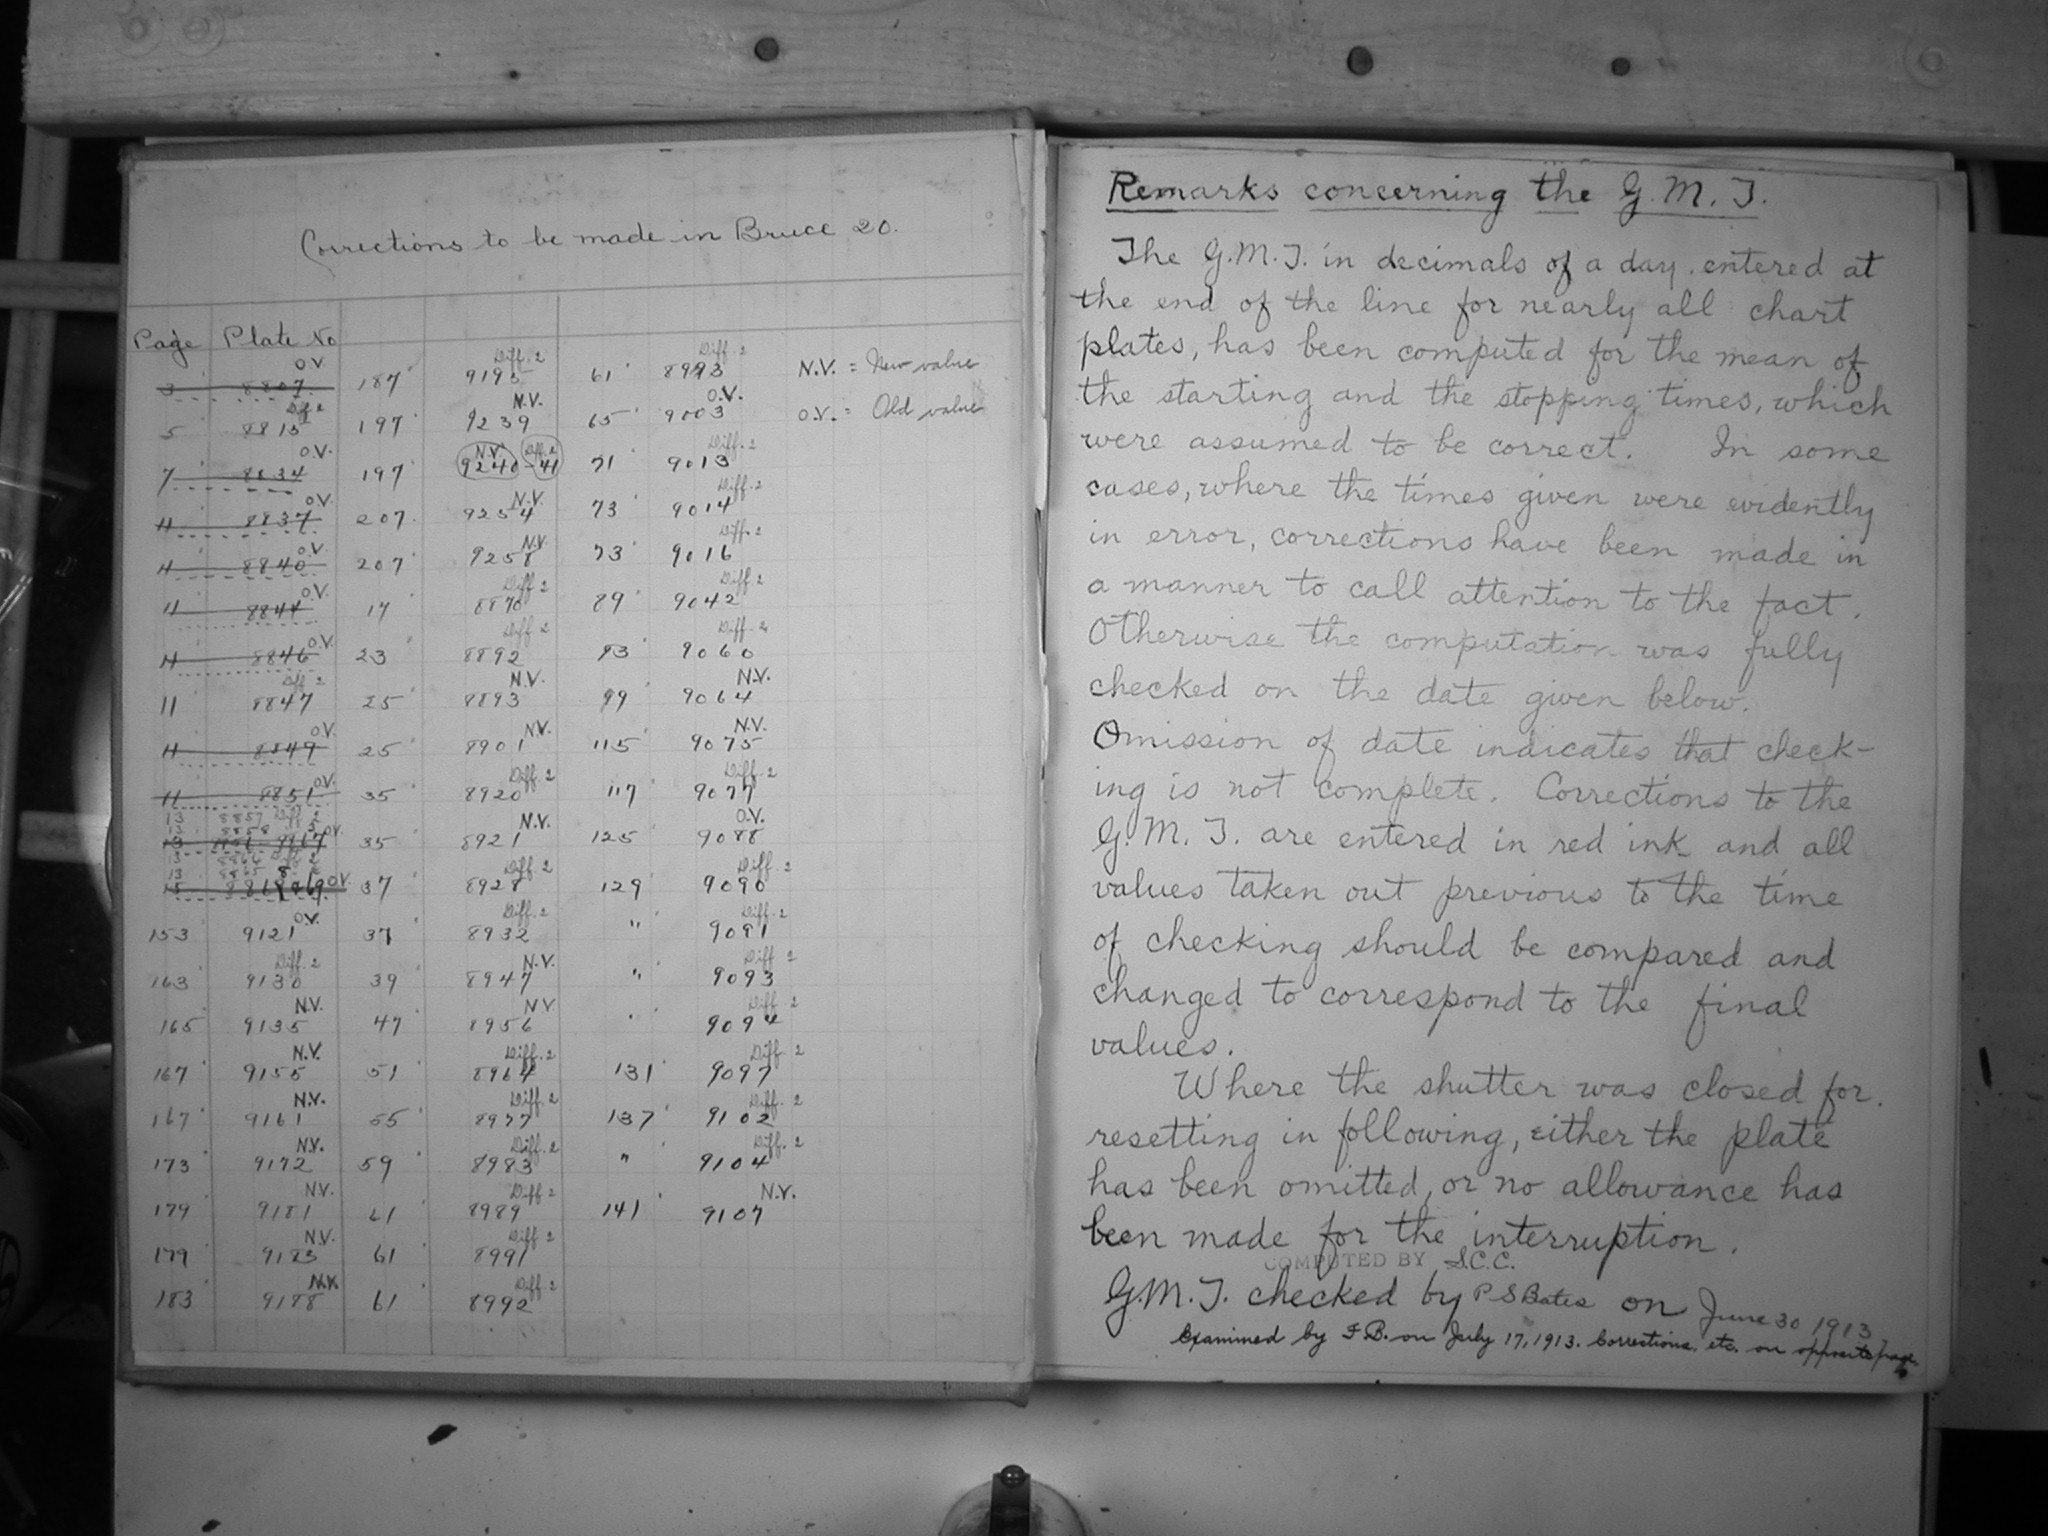 Corrections to be made in Bruce 20.
Page Plate No
3 8807 O.V. 187 9195 Diff. 2 61 8993 Diff. 2 N.V. = New value
5 8815 Diff 2 197 9239 N.V. 65 9003 O.V. O.V. = Old value
7 8834 O.V. 197 9240-41 N.V. Diff. 2 71 9013 Diff. 2
11 8837 O.V. 207 9254 N.V. 73 9014 Diff. 2
11 8840 O.V. 207 9258 N.V. 73 9016 Diff. 2
11 8844 O.V. 17 8870 Diff 2 89 9042 Diff. 2
11 8846 O.V. 23 8892 Diff 2 93 9060 Diff. 2
11 8847 Diff 2 25 8893 N.V. 99 9064 N.V.
11 8849 O.V. 25 8901 N.V. 115 9075 N.V.
11 8851 O.V. 35 8920 Diff. 2 117 9077 Diff. 2
13 8857 Diff 2
13 8858
13 O.V. 35 8921 N.V. 125 9088 O.V.
13 Diff 2
13
15 O.V. 37 8928 Diff. 2 129 9090 Diff. 2
153 9121 O.V. 37 8932 Diff. 2 " 9091 Diff. 2
163 9130 Diff. 2 39 8947 N.V. " 9093 Diff 2
165 9135 N.V. 47 8956 N.V. " 9094 Diff. 2
167 9155 N.V. 51 8964 Diff. 2 131 9097 Diff. 2
167 9161 N.V. 55 8977 Diff. 2 137 9102 Diff. 2
173 9172 N.V. 59 8983 Diff. 2 " 9104 Diff. 2
179 9181 N.V. 61 8989 Diff 2 141 9107 N.V.
179 9183 N.V. 61 8991 Diff 2
183 9188 N.V. 61 8992 Diff. 2
Remarks concerning the G.M.T.
The G.M.T. in decimals of a day entered at
the end of the line for nearly all chart
plates, has been computed for the mean of
the starting and the stopping times, which
were assumed to be correct. In some
cases, where the times given were evidently
in error, corrections have been made in
a manner to call attention to the fact.
Otherwise the computation was fully
checked on the date given below.
Omission of date indicates that check-
ing is not complete. Corrections to the
G.M.T. are entered in red ink and all
values taken out previous to the time
of checking should be compared and
changed to correspond to the final
values.
Where the shutter was closed for
resetting in following, either the plate
has been omitted, or no allowance has
been made for the interruption.
COMPUTED BY S.C.C.
G.M.T. checked by P S Bates on June 30 1913
Examined by F. B. on July 17, 1913. Corrections. etc. on opposite page.